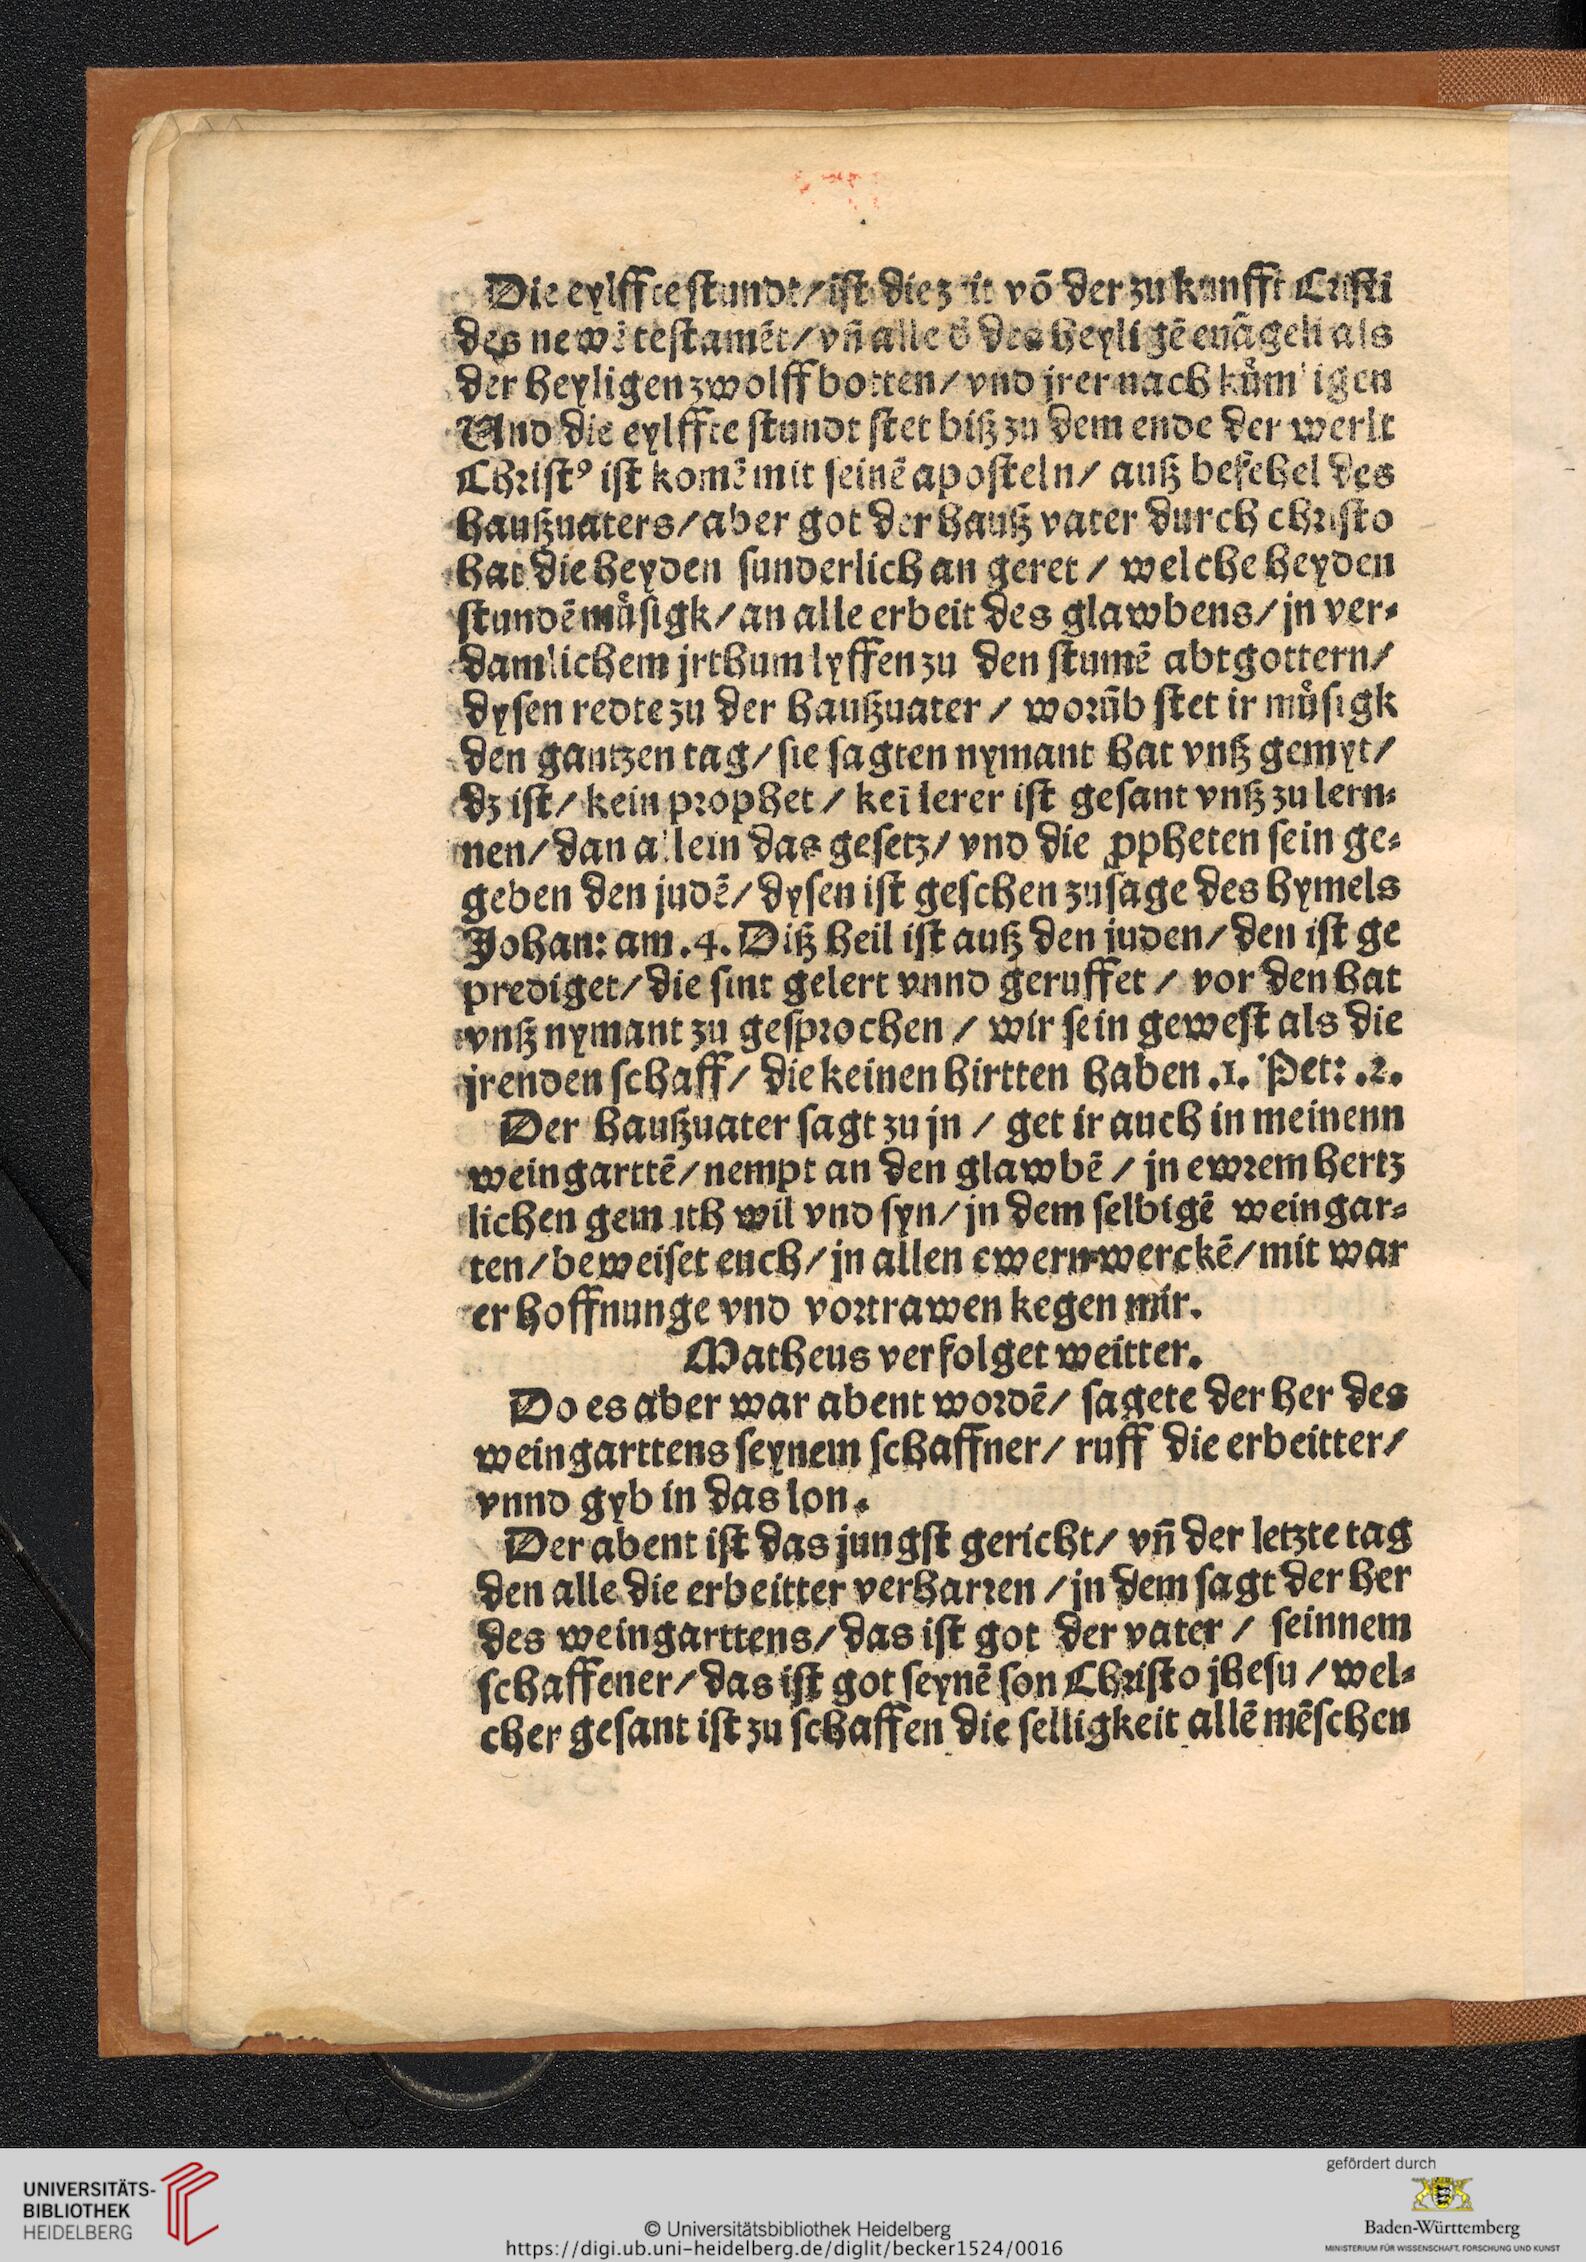 Die eylffte stundt/ ist die zeit võ der zukunfft Cristi
des newẽ testamẽt/ vñ alle des heyligẽ euãgeli als
der heyligen zwolff botten/ vnd jrer nachkuͤm igen
Vnd die eylffte stundt stet biß zu dem ende der werlt
Christꝰ ist komẽ mit seinẽ aposteln/ auß befehel des
haußuaters/ aber got der hauß vater durch christo
hat die heyden sunderlich an geret/ welche heyden
stundẽ muͤsigk/ an alle erbeit des glawbens/ jn ver⸗
damlichem jrthum lyffen zu den stumẽ abtgottern/
dysen redte zu der haußuater/ worũb stet ir muͤsigk
den gantzen tag/ sie sagten nymant hat vnß gemyt/
dz ist/ kein prophet/ keĩ lerer ist gesant vnß zu lern⸗
nen/ dan allein das gesetz/ vnd die ꝓpheten sein ge⸗
geben den judẽ/ dysen ist geschen zusage des hymels
Johan: am .4. Diß heil ist auß den juden/ den ist ge
prediget/ die sint gelert vnnd geruffet/ vor den hat
vnß nymant zu gesprochen/ wir sein gewest als die
jrenden schaff/ die keinen hirtten haben .1. Pet: .2.
Der haußuater sagt zu jn/ get ir auch in meinenn
weingarttẽ/ nempt an den glawbẽ/ jn ewrem hertz
lichen gemuth wil vnd syn/ jn dem selbigẽ weingar⸗
ten/ beweiset euch/ jn allen ewern werckẽ/ mit war
er hoffnunge vnd vortrawen kegen mir.
Matheus verfolget weitter.
Do es aber war abent wordẽ/ sagete der her des
weingarttens seynem schaffner/ ruff die erbeitter/
vnnd gyb in das lon.
Der abent ist das jungst gericht/ vñ der letzte tag
den alle die erbeitter verharren/ jn dem sagt der her
des weingarttens/ das ist got der vater/ seinnem
schaffener/ das ist got seynẽ son Christo jhesu/ wel⸗
cher gesant ist zu schaffen die selligkeit allẽ mẽschen
UNIVERSITÄTS-
BIBLIOTHEK
HEIDELBERG
© Universitätsbibliothek Heidelberg
https://digi.ub.uni-heidelberg.de/diglit/becker1524/0016
gefördert durch
Baden-Württemberg
MINISTERIUM FÜR WISSENSCHAFT, FORSCHUNG UND KUNST